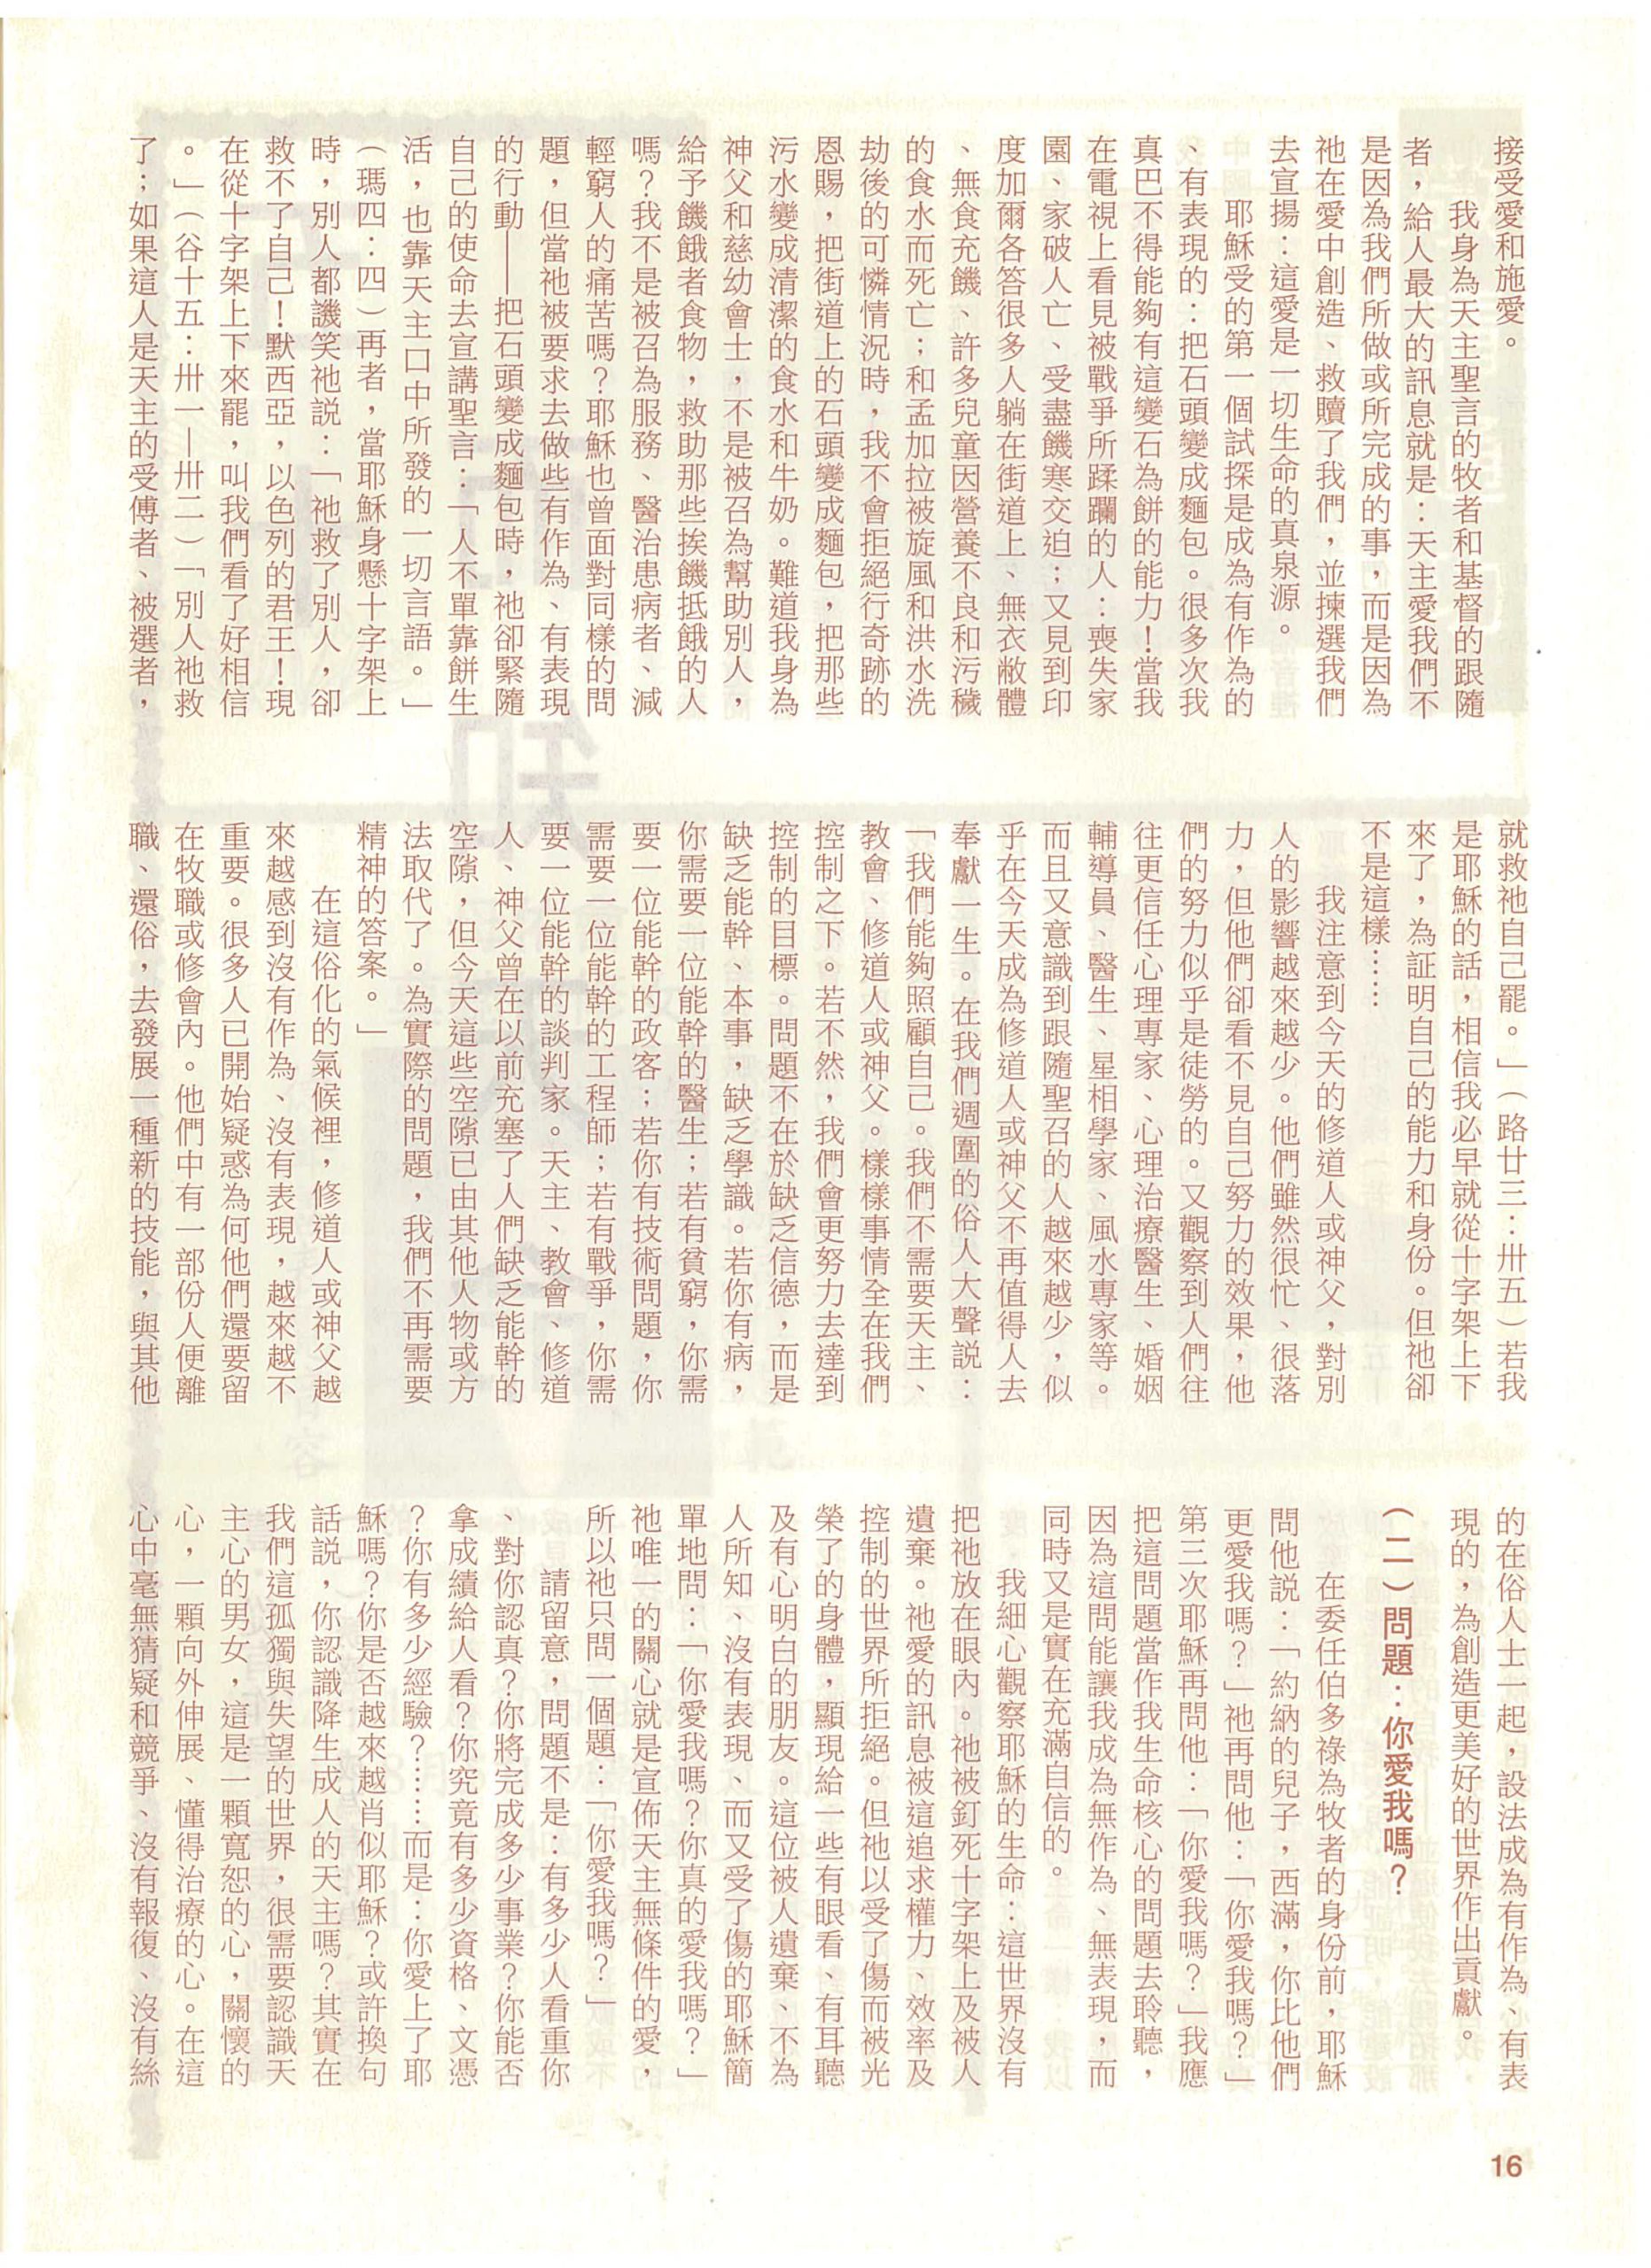 接受愛和施愛。
我身為天主聖言的牧者和基督的跟隨
者，給人最大的訊息就是：天主愛我們不
是因為我們所做或所完成的事，而是因為
祂在愛中創造、救贖了我們，並揀選我們
去宣揚：這愛是一切生命的真泉源。
耶穌受的第一個試探是成為有作為的
、有表現的：把石頭變成麵包。很多次我
真巴不得能夠有這變石為餅的能力！當我
在電視上看見被戰爭所蹂躪的人：喪失家
園、家破人亡、受盡饑寒交迫；又見到印
度加爾各答很多人躺在街道上、無衣敝體
、無食充饑、許多兒童因營養不良和污穢
的食水而死亡；和孟加拉被旋風和洪水洗
劫後的可憐情況時，我不會拒絕行奇跡的
恩賜，把街道上的石頭變成麵包，把那些
污水變成清潔的食水和牛奶。難道我身為
神父和慈幼會士，不是被召為幫助別人，
給予饑餓者食物，救助那些挨饑抵餓的人
嗎？我不是被召為服務、醫治患病者、減
輕窮人的痛苦嗎？耶穌也曾面對同樣的問
題，但當祂被要求去做些有作為、有表現
的行動——把石頭變成麵包時，祂卻緊隨
自己的使命去宣講聖言：「人不單靠餅生
活，也靠天主口中所發的一切言語。」
（瑪四：四）再者，當耶穌身懸十字架上
時，別人都譏笑祂説：「祂救了別人，卻
救不了自己！默西亞，以色列的君王！現
在從十字架上下來罷，叫我們看了好相信
。」（谷十五：卅一—卅二）「別人祂救
了；如果這人是天主的受傅者、被選者，
就救祂自己罷。」（路廿三：卅五）若我
是耶穌的話，相信我必早就從十字架上下
來了，為証明自己的能力和身份。但祂卻
不是這樣……
我注意到今天的修道人或神父，對別
人的影響越來越少。他們雖然很忙、很落
力，但他們卻看不見自己努力的效果，他
們的努力似乎是徒勞的。又觀察到人們往
往更信任心理專家、心理治療醫生、婚姻
輔導員、醫生、星相學家、風水專家等。
而且又意識到跟隨聖召的人越來越少，似
乎在今天成為修道人或神父不再值得人去
奉獻一生。在我們週圍的俗人大聲説：
「我們能夠照顧自己。我們不需要天主、
教會、修道人或神父。樣樣事情全在我們
控制之下。若不然，我們會更努力去達到
控制的目標。問題不在於缺乏信德，而是
缺乏能幹、本事，缺乏學識。若你有病，
你需要一位能幹的醫生；若有貧窮，你需
要一位能幹的政客；若你有技術問題，你
需要一位能幹的工程師；若有戰爭，你需
要一位能幹的談判家。天主、教會、修道
人、神父曾在以前充塞了人們缺乏能幹的
空隙，但今天這些空隙已由其他人物或方
法取代了。為實際的問題，我們不再需要
精神的答案。」
在這俗化的氣候裡，修道人或神父越
來越感到沒有作為、沒有表現，越來越不
重要。很多人已開始疑惑為何他們還要留
在牧職或修會內。他們中有一部份人便離
職、還俗，去發展一種新的技能，與其他
的在俗人士一起，設法成為有作為、有表
現的，為創造更美好的世界作出貢獻。
（二）問題：你愛我嗎？
在委任伯多祿為牧者的身份前，耶穌
問他説：「約納的兒子，西滿，你比他們
更愛我嗎？」祂再問他：「你愛我嗎？」
第三次耶穌再問他：「你愛我嗎？」我應
把這問題當作我生命核心的問題去聆聽，
因為這問能讓我成為無作為、無表現，而
同時又是實在充滿自信的。
我細心觀察耶穌的生命：這世界沒有
把祂放在眼內。祂被釘死十字架上及被人
遺棄。祂愛的訊息被這追求權力、效率及
控制的世界所拒絕。但祂以受了傷而被光
榮了的身體，顯現給一些有眼看、有耳聽
及有心明白的朋友。這位被人遺棄、不為
人所知、沒有表現、而又受了傷的耶穌簡
單地問：「你愛我嗎？你真的愛我嗎？」
祂唯一的關心就是宣佈天主無條件的愛，
所以祂只問一個題：「你愛我嗎？」
請留意，問題不是：有多少人看重你
、對你認真？你將完成多少事業？你能否
拿成績給人看？你究竟有多少資格、文憑
？你有多少經驗？……而是：你愛上了耶
穌嗎？你是否越來越肖似耶穌？或許換句
話説，你認識降生成人的天主嗎？其實在
我們這孤獨與失望的世界，很需要認識天
主心的男女，這是一顆寬恕的心，關懷的
心，一顆向外伸展、懂得治療的心。在這
心中毫無猜疑和競爭、沒有報復、沒有絲
16